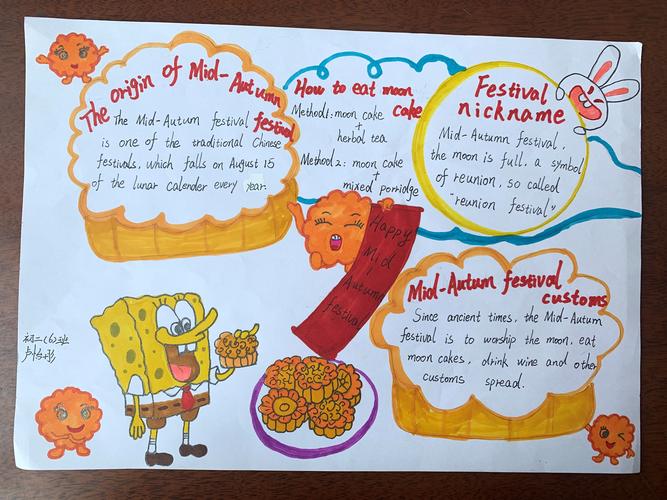 The origin of Mid-Autumn festival
The Mid-Autum festival
is one of the traditional Chinese
festivals, which falls on August 15
of the lunar calender every year.
How to eat moon cake
Method1: moon cake
+
herbal tea
Method2: moon cake
+
mixed porridge
Festival
nickname
Mid-Autumn festival,
the moon is full, a symbol
of reunion, so called
"reunion festival"
Happy
Mid
-
Autumn
festival
Mid-Autum festival
customs
Since ancient times, the Mid-Autum
festival is to worship the moon, eat
moon cakes, drink wine and other
customs spread.
初二(6)班